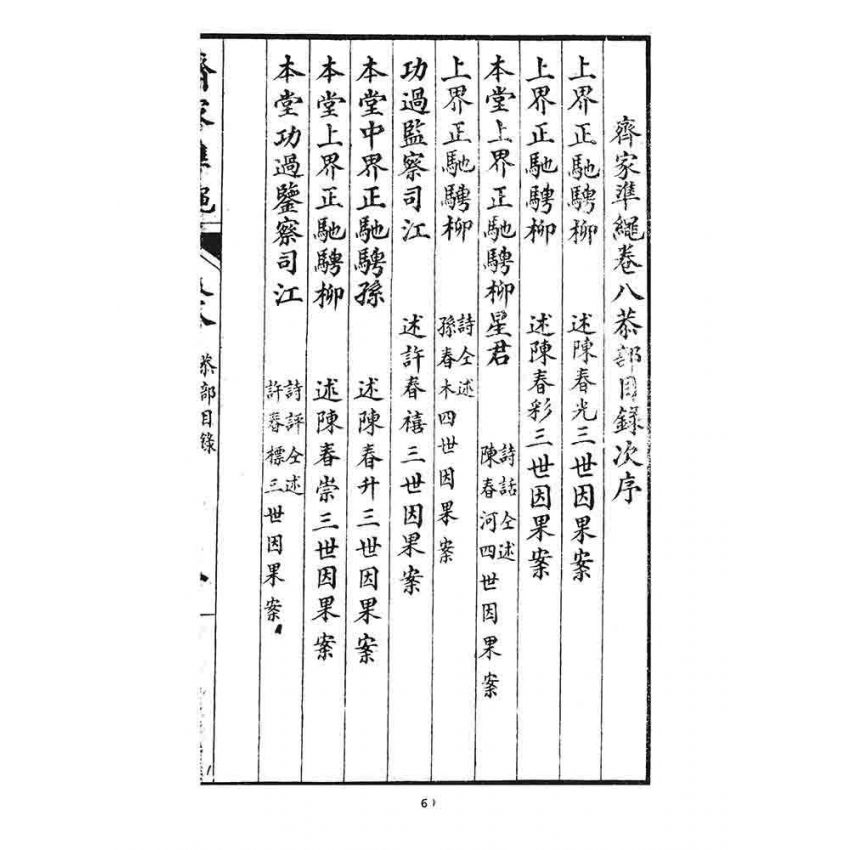 齊家準繩卷八恭部目錄次序
上界正馳騁柳 述陳春光三世因果案
上界正馳騁柳 述陳春彩三世因果案
本堂上界正馳騁柳星君 詩話仝述 陳春河四世因果案
上界正馳騁柳 詩仝述 孫春木四世因果案
功過監察司江 述許春禧三世因果案
本堂中界正馳騁孫 述陳春升三世因果案
本堂上界正馳騁柳 述陳春崇三世因果案
本堂功過鑒察司江 詩評仝述 許春標三世因果案
齊家準繩
恭部目錄
6